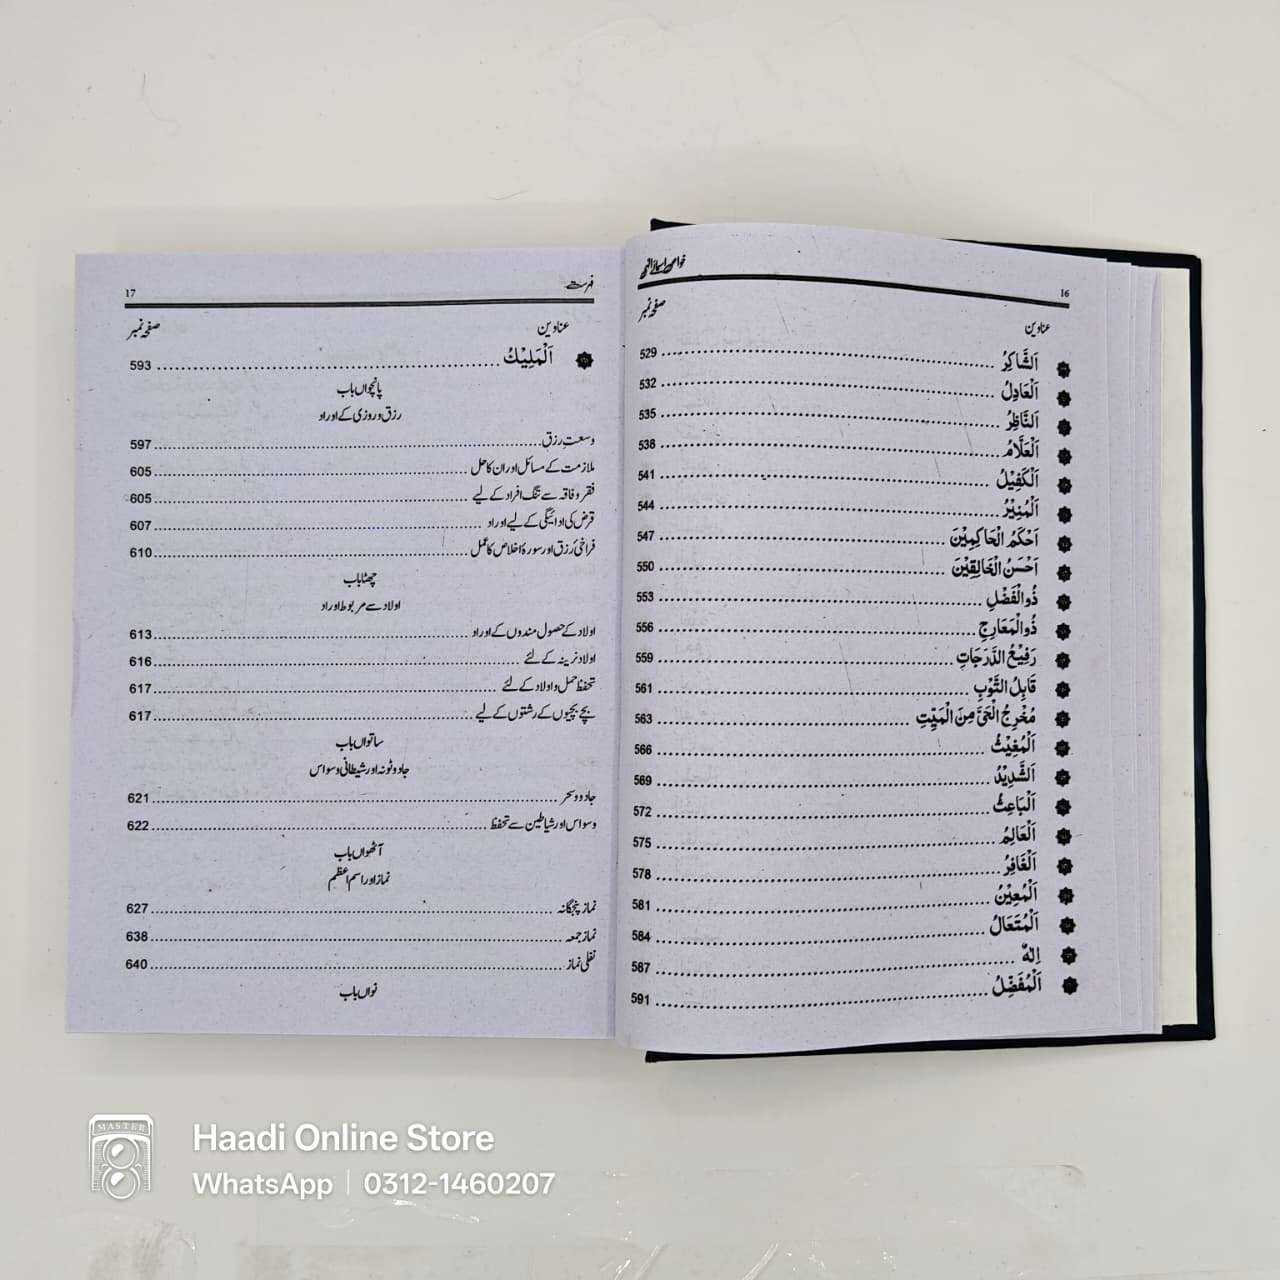 خواص اسمائے الٰہی
16
عناوین
صفحہ نمبر
اَلشَّاكِرُ ........ 529
اَلْعَادِلُ ........ 532
اَلنَّاظِرُ ........ 535
اَلْعَلَّامُ ........ 538
اَلْكَفِيْلُ ........ 541
اَلْمُنِيْرُ ........ 544
اَحْكَمُ الْحَاكِمِيْنَ ........ 547
اَحْسَنُ الْخَالِقِيْنَ ........ 550
ذُوالْفَضْلِ ........ 553
ذُوالْمَعَارِجِ ........ 556
رَفِيْعُ الدَّرَجَاتِ ........ 559
قَابِلُ التَّوْبِ ........ 561
مُخْرِجُ الْحَيَّ مِنَ الْمَيِّتِ ........ 563
اَلْمُغِيْثُ ........ 566
اَلشَّدِيْدُ ........ 569
اَلْبَاعِثُ ........ 572
اَلْعَالِمُ ........ 575
اَلْغَافِرُ ........ 578
اَلْمُعِيْنُ ........ 581
اَلْمُتَعَالُ ........ 584
اِلٰهٌ ........ 587
اَلْمُفَضِّلُ ........ 591
فہرست
17
عناوین
صفحہ نمبر
اَلْمَلِيْكُ ........ 593
پانچواں باب
رزق و روزی کے اوراد
وسعتِ رزق ........ 597
ملازمت کے مسائل اور ان کا حل ........ 605
فقر و فاقہ سے تنگ افراد کے لیے ........ 605
قرض کی ادائیگی کے لیے اوراد ........ 607
فراخیٔ رزق اور سورۂ اخلاص کا عمل ........ 610
چھٹا باب
اولاد سے مربوط اوراد
اولاد کے حصول مندوں کے اوراد ........ 613
اولاد نرینہ کے لئے ........ 616
تحفظ حمل و اولاد کے لئے ........ 617
بچے بچیوں کے رشتوں کے لیے ........ 617
ساتواں باب
جادو ٹونہ اور شیطانی وسواس
جادو و سحر ........ 621
وسواس اور شیاطین سے تحفظ ........ 622
آٹھواں باب
نماز اور اسم اعظم
نماز پنجگانہ ........ 627
نماز جمعہ ........ 638
نفلی نماز ........ 640
نواں باب
MASTER
Haadi Online Store
WhatsApp | 0312-1460207